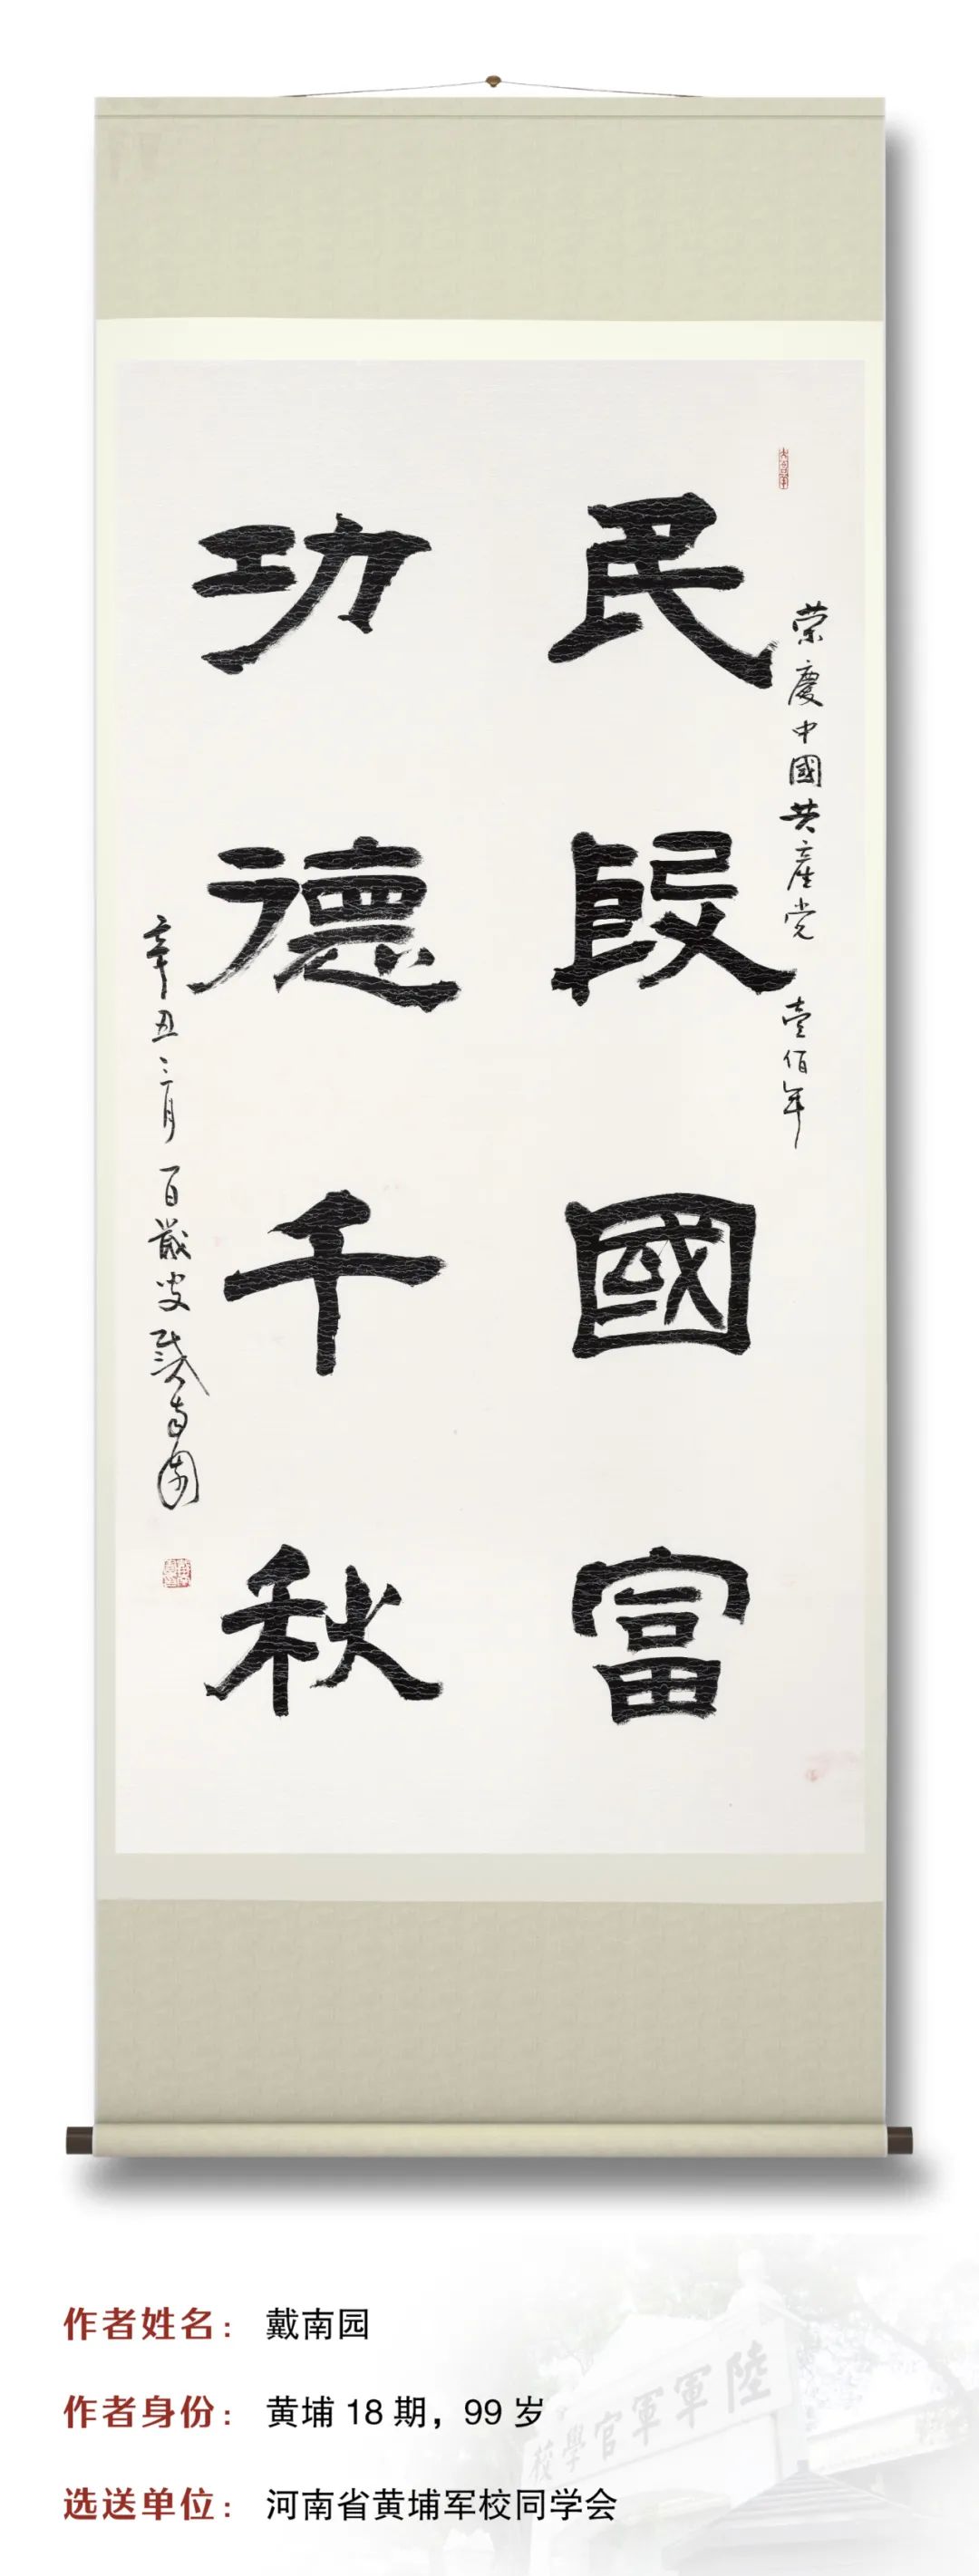 荣慶中國共產党壹佰年
民殷國富
功德千秋
辛丑三月百歲叟戴南园
作者姓名： 戴南园
作者身份： 黄埔 18 期，99 岁
选送单位： 河南省黄埔军校同学会
陸軍軍官學校